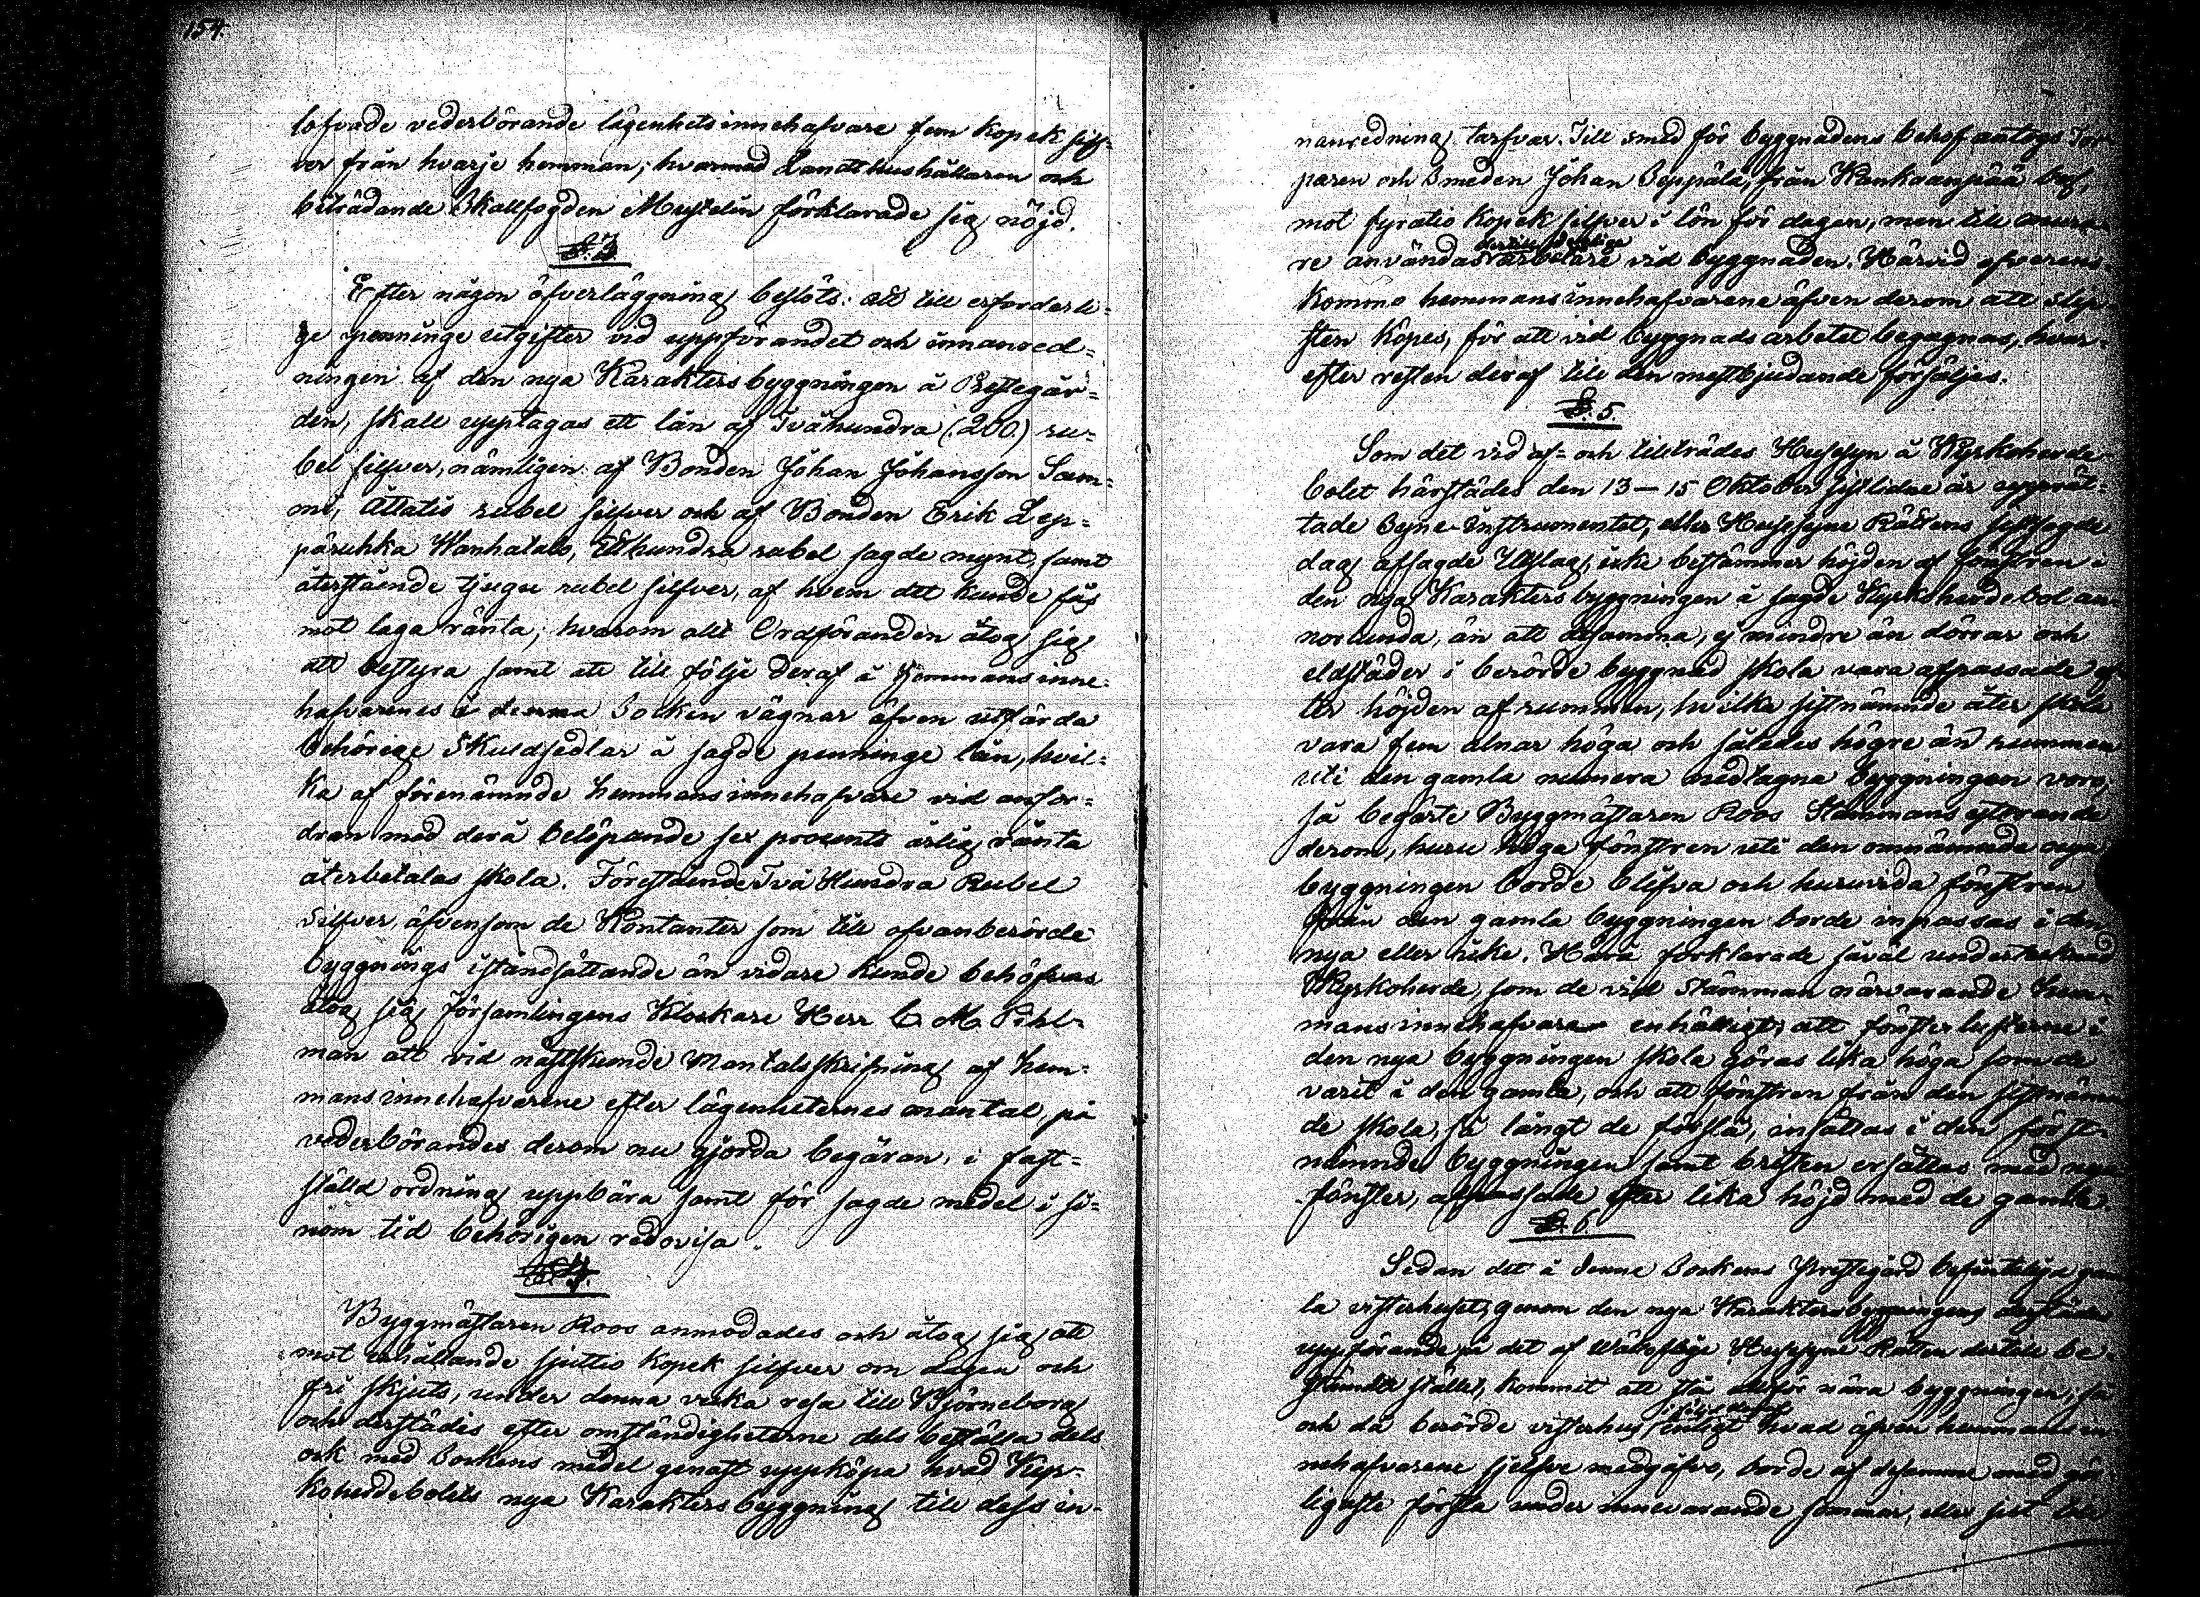 154.
lofvade vederbörande lägenhetsinnehafvare fem kopek silf-
ver från hvarje hemman; hvarmed Landthushållaren och
biträdande Skallfogden Mustelin förklarade sig nöjd.
§. 3.
Efter någon öfverläggning beslöts: att till erforderli-
ge penninge utgifter vid uppförandet och innanred-
ningen af den nya Karaktersbyggningen å Prestegår-
den, skall upptagas ett lån af Tvåhundra (200) ru-
bel silfver, nämligen af Bonden Johan Johansson Sam-
mi, Åttatio rubel silfver och af Bonden Erik Lep-
päruhka Wanhatalo, Etthundra rubel sagde mynt, samt
återstående tjugu rubel silfver, af hvem det kunde fås
mot laga ränta; hvarom allt Ordföranden åtog sig
att bestyra samt att till följe deraf å Hemmansinne-
hafvarenes i denna Socken vägnar äfven utfärda
behörige Skuldsedlar å sagde penninge lån, hvil-
ka af förenämnde hemmansinnehafvare vid anfor-
dran med derå belöpande sex procents årlig ränta
återbetalas skola. Förestående Två Hundra Rubel
Silfver, äfvensom de Kontanter som till ofvanberörde
byggnings iståndsättande än vidare kunde behöfvas
åtog sig Församlingens Klockare Herr C. M. Pihl-
man att vid nästkunde Mantalsskrifning af hem-
mansinnehafvarene efter lägenheternes mantal, på
vederbörandes derom nu gjorda begäran, i fast-
ställd ordning uppbära samt för sagde medel i si-
nom tid behörigen redovisa.
§. 4.
Byggmästaren Roos anmodades och åtog sig att
mot erhållande sjuttio kopek silfver om dagen och
fri skjuts, under denna vecka resa till Björneborg
och derstädes efter omständigheterne dels beställa dels
ock med Sockens medel genast uppköpa hvad Kyr-
koherdebolets nya Karaktersbyggning till dess in-
nanredning tarfvar. Till smed för byggnadens behof antogs Tor-
paren och Smeden Johan Seppälä, från Kankaanpää
mot fyratio kopek silfver i lön för dagen, men till mura-
re användas arbetare vid byggnaden. Härvid öfverens-
kommo hemmansinnehafvarene äfven derom att
sten köpes, för att vid byggnads arbetet begagnas, hvar-
efter resten deraf till den mestbjudande försäljes.
§. 5.
Som det vid af- och tillträdes Husesyn å Kyrkoherde
bolet härstädes den 13–15 Oktober sistlidne år upprät-
tade Syne-Instrumentet, eller Husesyne Rättens sistsagde
dag afsagde Utslag, icke bestämmer höjden af fönstren i
den nya Karaktersbyggningen å sagde Kyrkoherdebol an-
norlunda, än att desamma, ej mindre än dörrar och
eldstäder i berörde byggnad skola vara afpassade ef-
ter höjden af rummen, hvilka sistnämnde åter skola
vara fem alnar höga och således högre än rummen
uti den gamla numera nedtagna byggningen voro,
så begärte Byggmästaren Roos Stämmans yttrande
derom, huru höga fönstren uti den omnämnda nya
byggningen borde blifva och huruvida fönstren
från den gamla byggningen borde inpassas i den
nya eller icke. Härå förklarade såväl undertecknad
Kyrkoherde, som de vid Stämman närvarande hem-
mansinnehafvare enhälligt, att fönsterlufterne i
den nya byggningen skola göras lika höga som de
varit i den gamla, och att fönstren från den sistnämn-
de skola, så långt de förslå, insättas i den först-
nämnde byggningen samt bristen ersättas med nya
fönster, afpassade efter lika höjd med de gamle.
§. 6.
Sedan det å denne Sockens Prestegård befintelige gam-
la visterhuset, genom den nya Karaktersbyggningens
uppförande på det af Wällofliga Husesyne Rätten dertill be-
stämde stället, kommit att stå alltför nära byggningen, så
och då berörde visterhus enligt hvad äfven hemmansin-
nehafvarene sjelfve medgåfvo, borde af desamme med gör-
ligaste första under innevarande sommar, eller sist